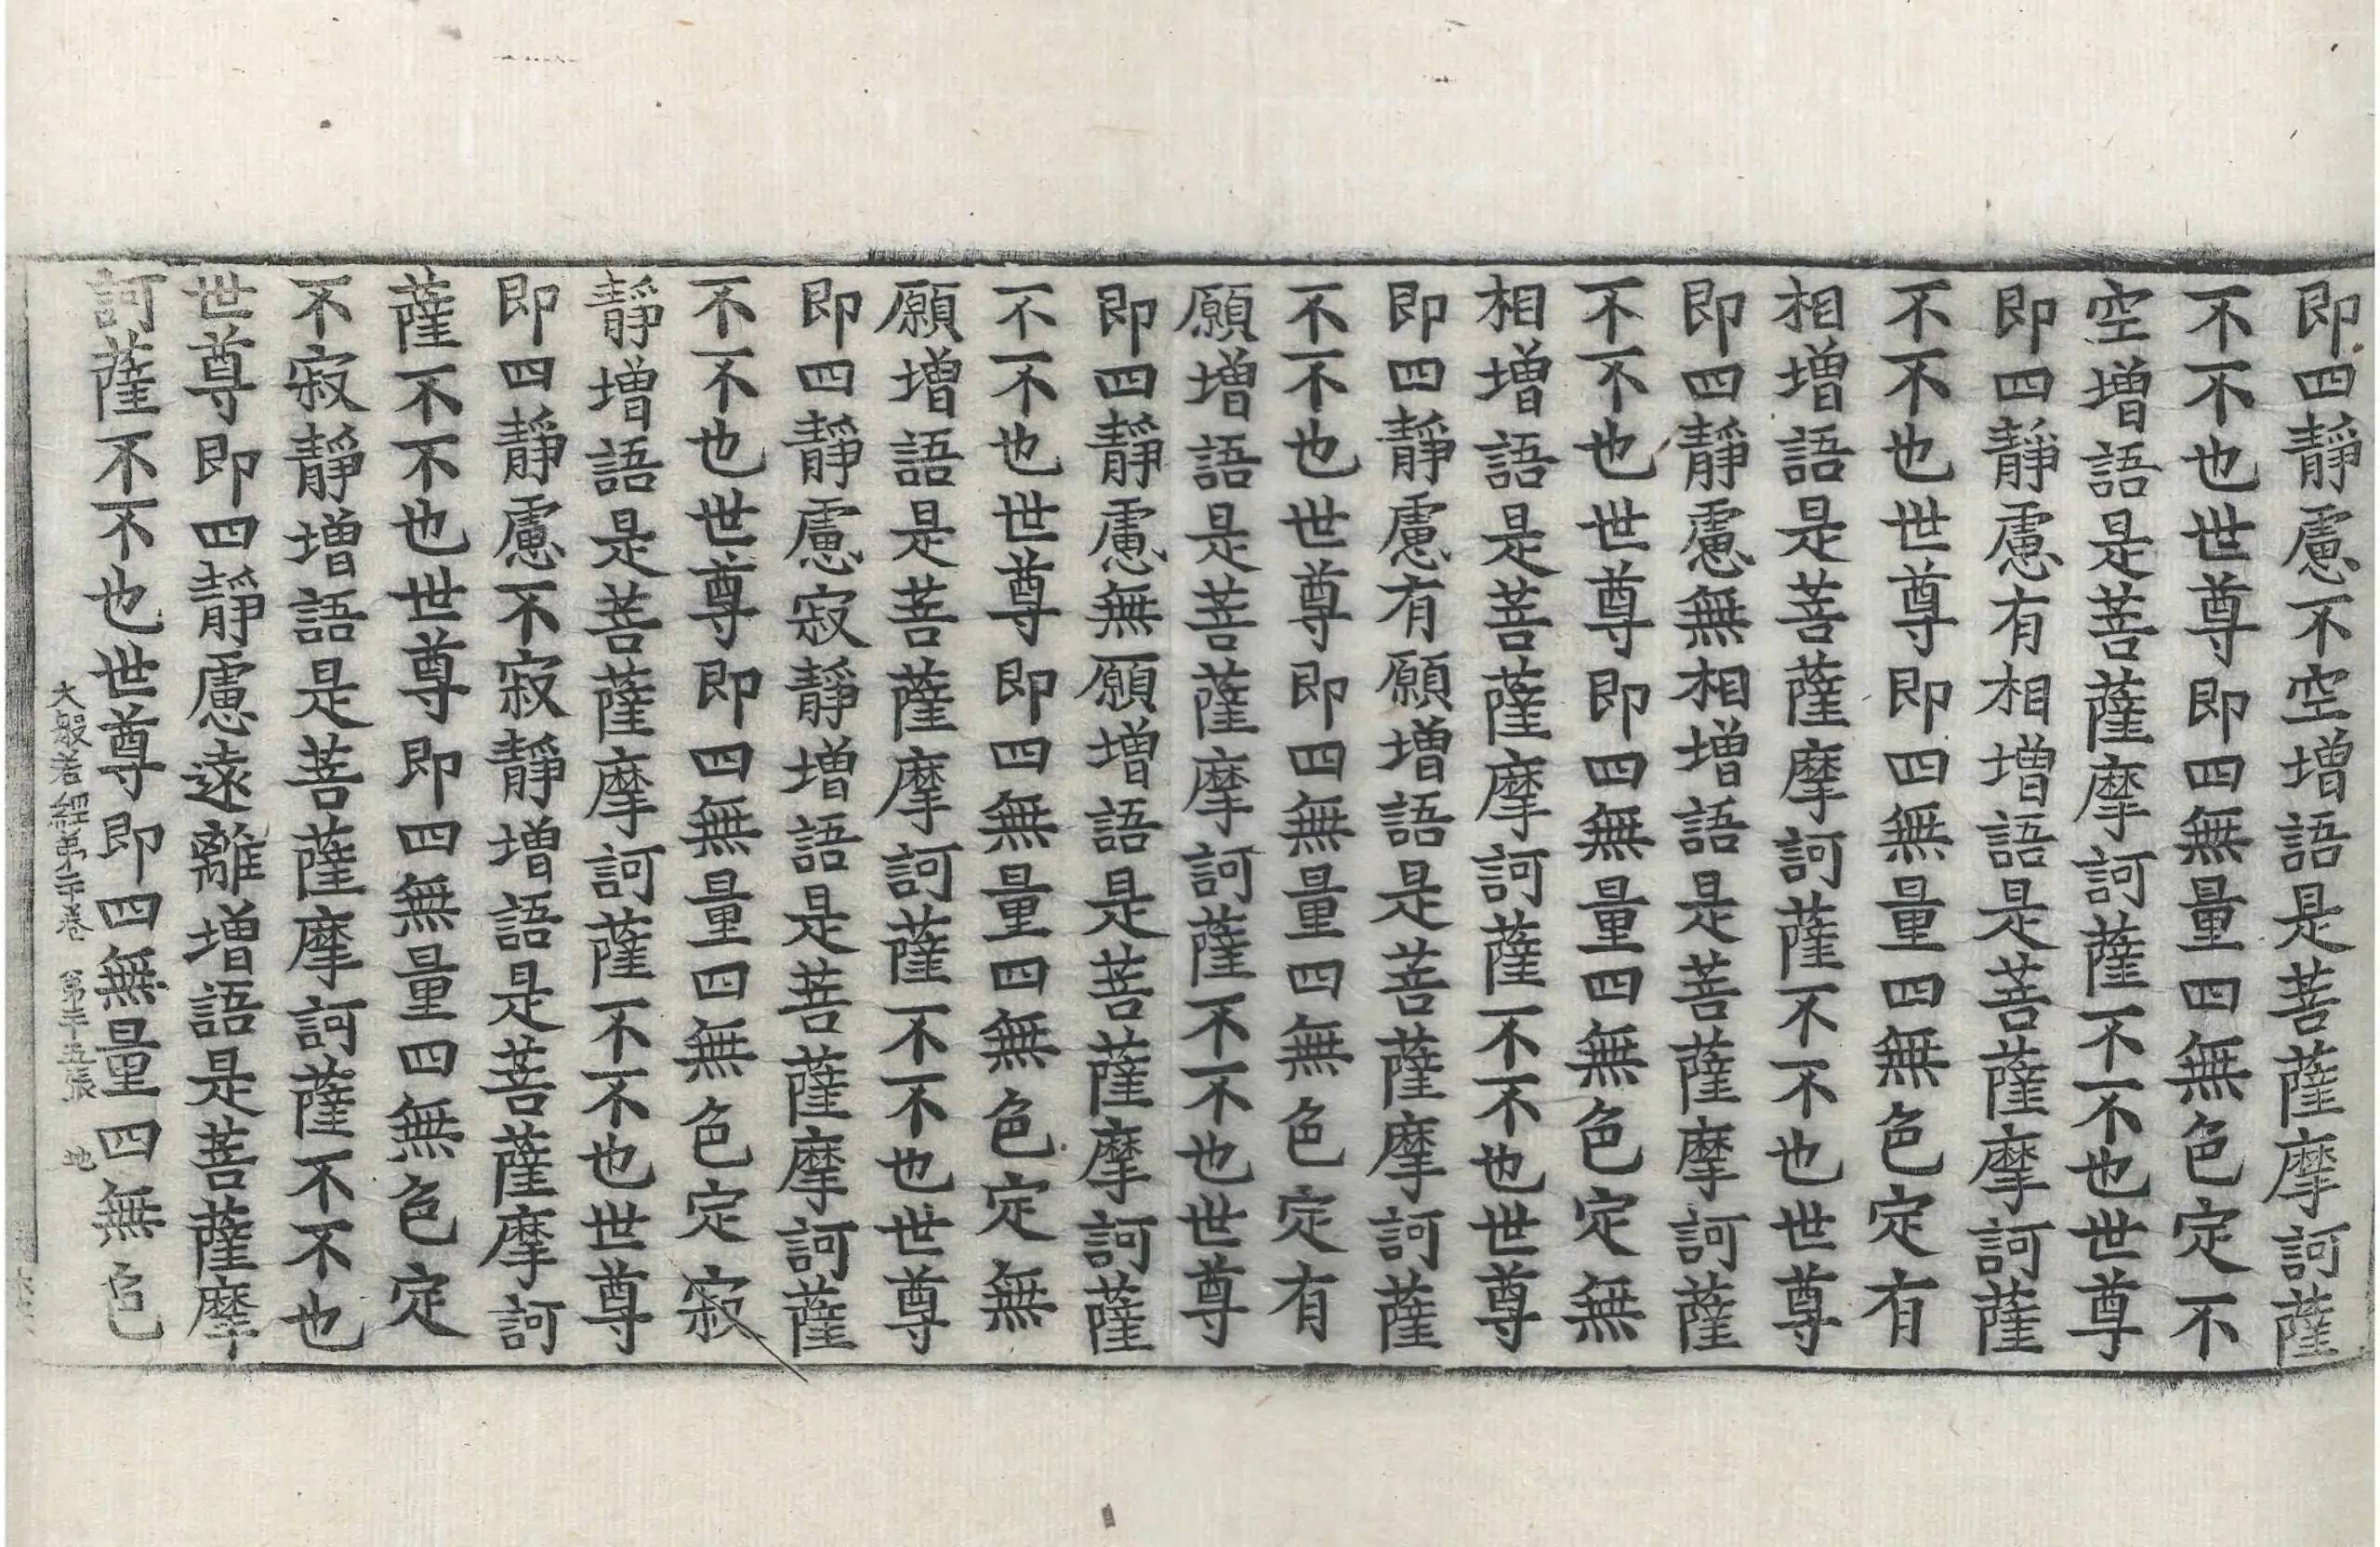 即四靜慮不空增語是菩薩摩訶薩
不不也世尊即四無量四無色定不
空增語是菩薩摩訶薩不不也世尊
即四靜慮有相增語是菩薩摩訶薩
不不也世尊即四無量四無色定有
相增語是菩薩摩訶薩不不也世尊
即四靜慮無相增語是菩薩摩訶薩
不不也世尊即四無量四無色定無
相增語是菩薩摩訶薩不不也世尊
即四靜慮有願增語是菩薩摩訶薩
不不也世尊即四無量四無色定有
願增語是菩薩摩訶薩不不也世尊
即四靜慮無願增語是菩薩摩訶薩
不不也世尊即四無量四無色定無
願增語是菩薩摩訶薩不不也世尊
即四靜慮寂靜增語是菩薩摩訶薩
不不也世尊即四無量四無色定寂
靜增語是菩薩摩訶薩不不也世尊
即四靜慮不寂靜增語是菩薩摩訶
薩不不也世尊即四無量四無色定
不寂靜增語是菩薩摩訶薩不不也
世尊即四靜慮遠離增語是菩薩摩
訶薩不不也世尊即四無量四無色
大般若經第二十卷 第二十五張 地